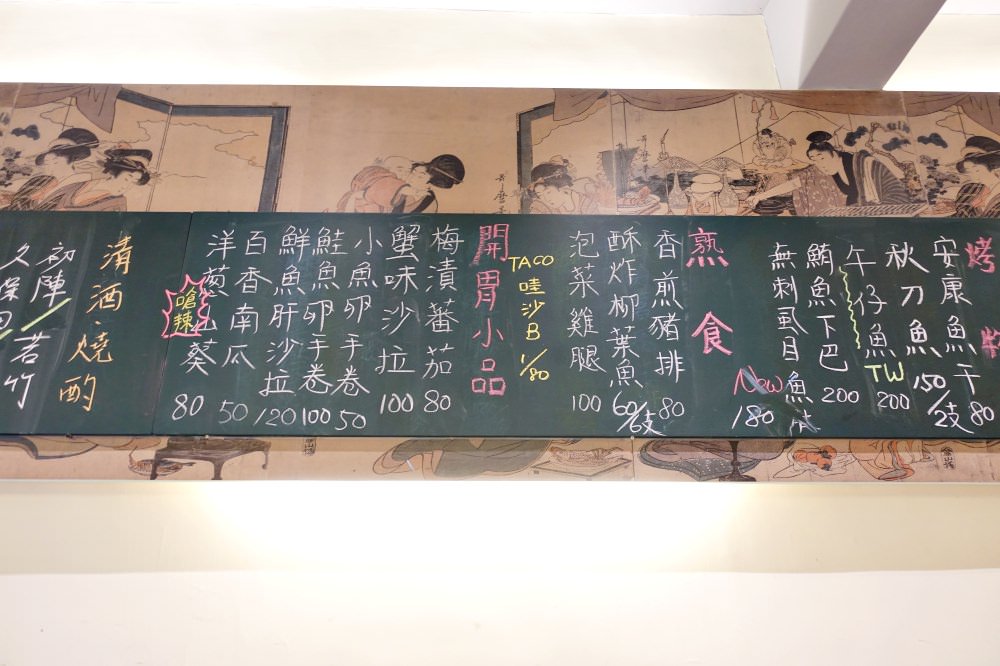 烤物
安康魚干 80
秋刀魚 150/2支
午仔魚 TW 200
鮪魚下巴 200
無刺虱目魚 180
New
熟食
香煎豬排 80
酥炸柳葉魚 60/6支
泡菜雞腿 100
TACO哇沙B 1/80
開胃小品
梅漬蕃茄 80
蟹味沙拉 100
小魚卵手卷 50
鮭魚卵手卷 100
鮮魚肝沙拉 120
百香南瓜 50
洋蔥 葵 80
嗆辣
清酒、燒酌
初陣 若竹
久保田